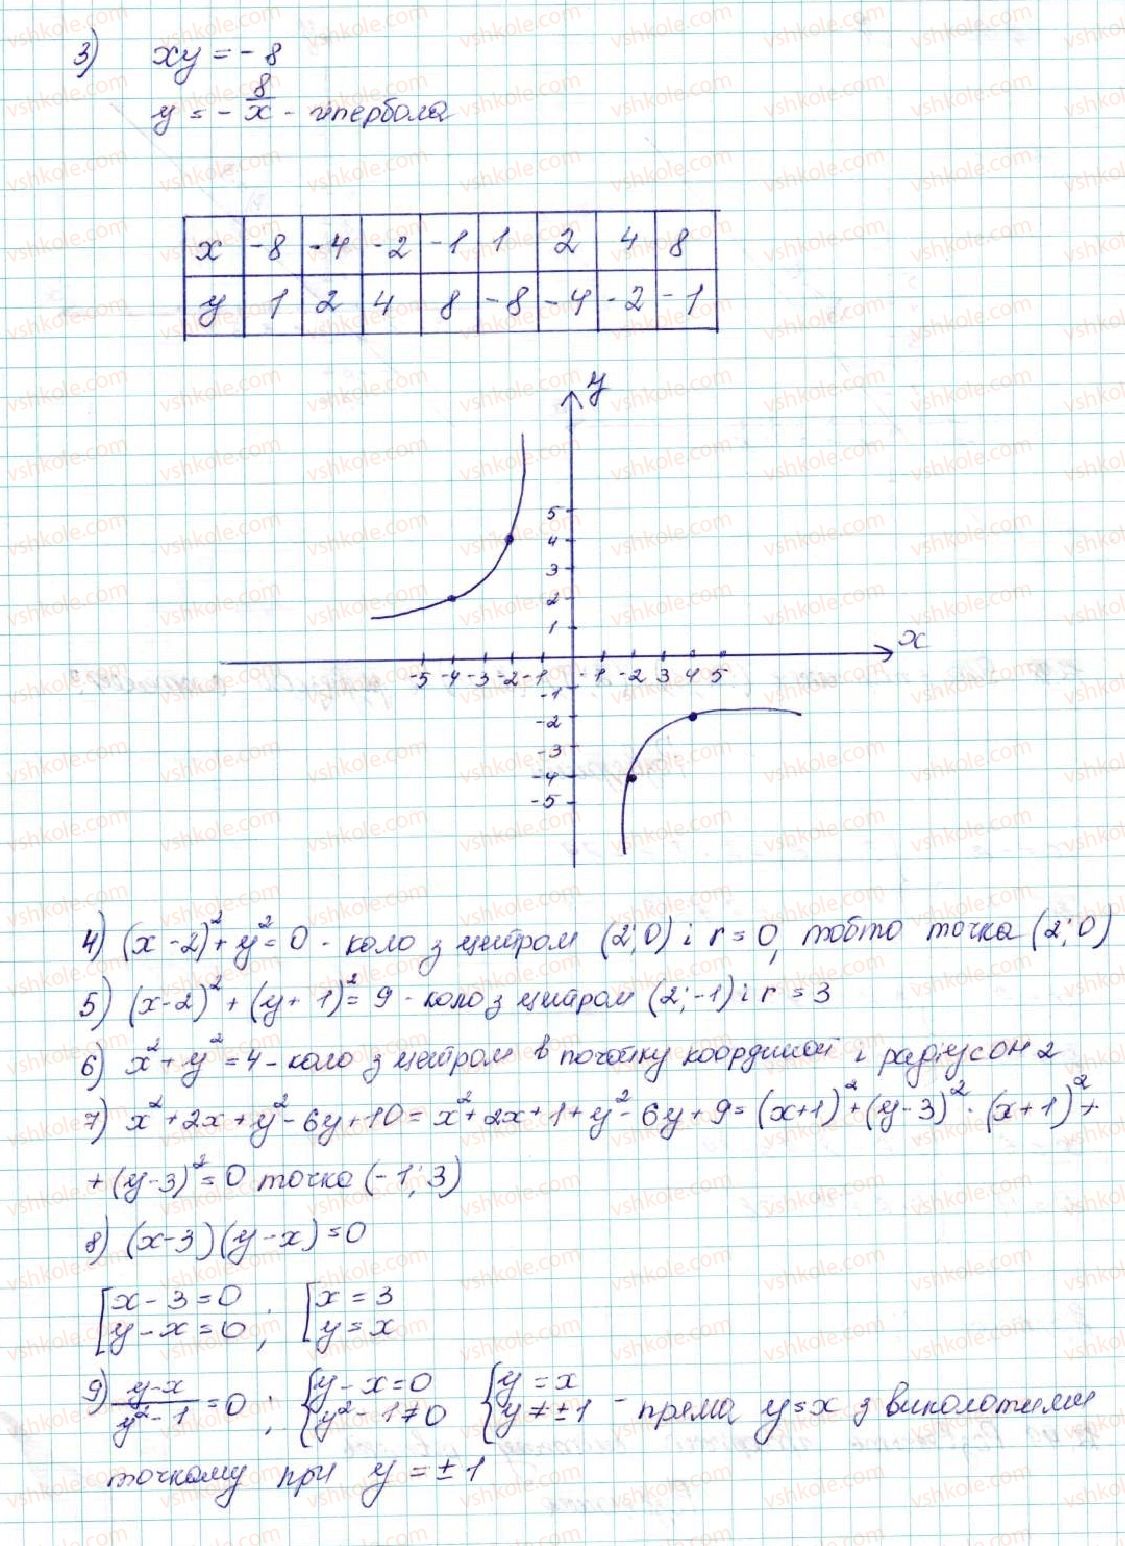 3) xy = -8
y = -8/x - гіпербола
x -8 -4 -2 -1 1 2 4 8
y 1 2 4 8 -8 -4 -2 -1
y
5
4
3
2
1
x
-5 -4 -3 -2 -1 -1 -2 3 4 5
-1
-2
-3
-4
-5
4) (x-2)² + y² = 0 - коло з центром (2; 0) і r = 0, тобто точка (2; 0)
5) (x-2)² + (y+1)² = 9 - коло з центром (2; -1) і r = 3
6) x² + y² = 4 - коло з центром в початку координат і радіусом 2
7) x² + 2x + y² - 6y + 10 = x² + 2x + 1 + y² - 6y + 9 = (x+1)² + (y-3)². (x+1)² +
+ (y-3)² = 0 точка (-1; 3)
8) (x-3)(y-x) = 0
[x-3=0 ; [x=3
[y-x=0 , [y=x
9) (y-x)/(y²-1) = 0 ; {y-x=0 {y=x
{y²-1≠0 {y≠±1 - пряма y=x з виколотими
точкому при y = ±1